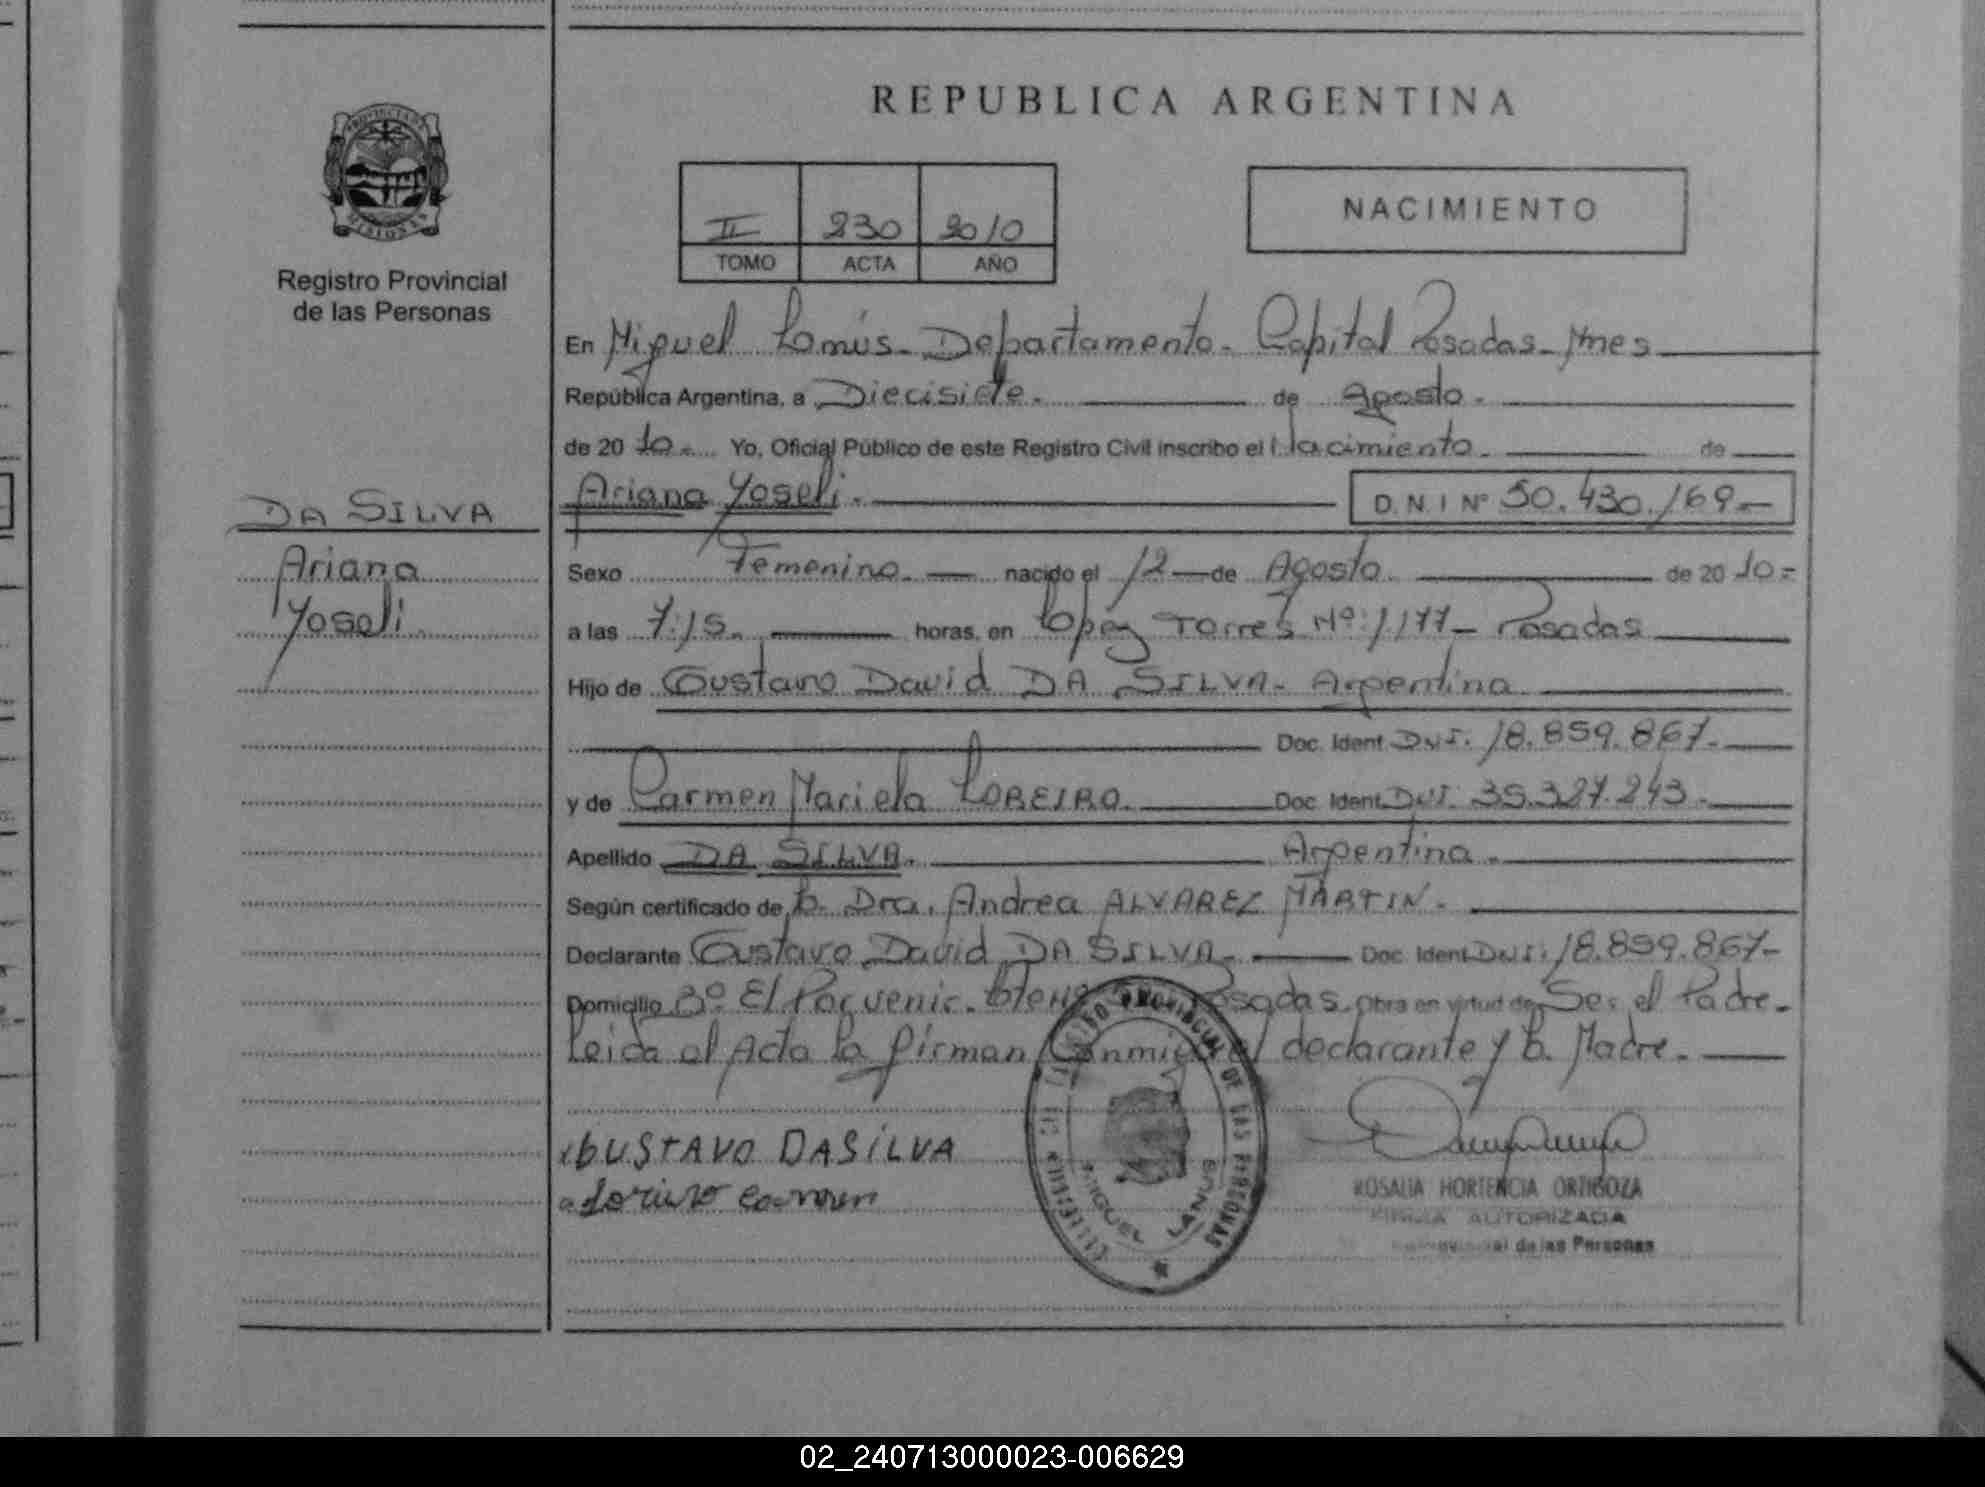 REPUBLICA ARGENTINA
PROVINCIA DE
MISIONES
Registro Provincial
de las Personas
II 230 2010
TOMO ACTA AÑO
NACIMIENTO
En Miguel Lanús - Departamento - Capital Posadas - Mnes
República Argentina, a Diecisiete. de Agosto.
de 20 10 - Yo, Oficial Público de este Registro Civil inscribo el Nacimiento. de
DA SILVA
Ariana
Yoseli.
Ariana Yoseli. D.N.I Nº 50.430.169.-
Sexo Femenino. nacido el 12 de Agosto. de 20 10.-
a las 7:15. horas, en López Torres Nº 1.177 - Posadas
Hijo de Gustavo David DA SILVA - Argentina
Doc. Ident. DNI. 18.859.867.-
y de Carmen Mariela LOREIRO. Doc. Ident. DNI. 35.327.243.-
Apellido DA SILVA. Argentina.
Según certificado de la Dra. Andrea ALVAREZ MARTIN.
Declarante Gustavo David DA SILVA. Doc. Ident. DNI. 18.859.867-
Domicilio Bº El Porvenir. Posadas. Obra en virtud de Ser el Padre.
Leida el Acta la firman Conmigo el declarante y la Madre.
GUSTAVO DASILVA
Carmen
REGISTRO PROVINCIAL DE LAS PERSONAS
MIGUEL LANUS
ROSALIA HORTENCIA ORTIGOZA
FIRMA AUTORIZADA
de las Personas
02_240713000023-006629